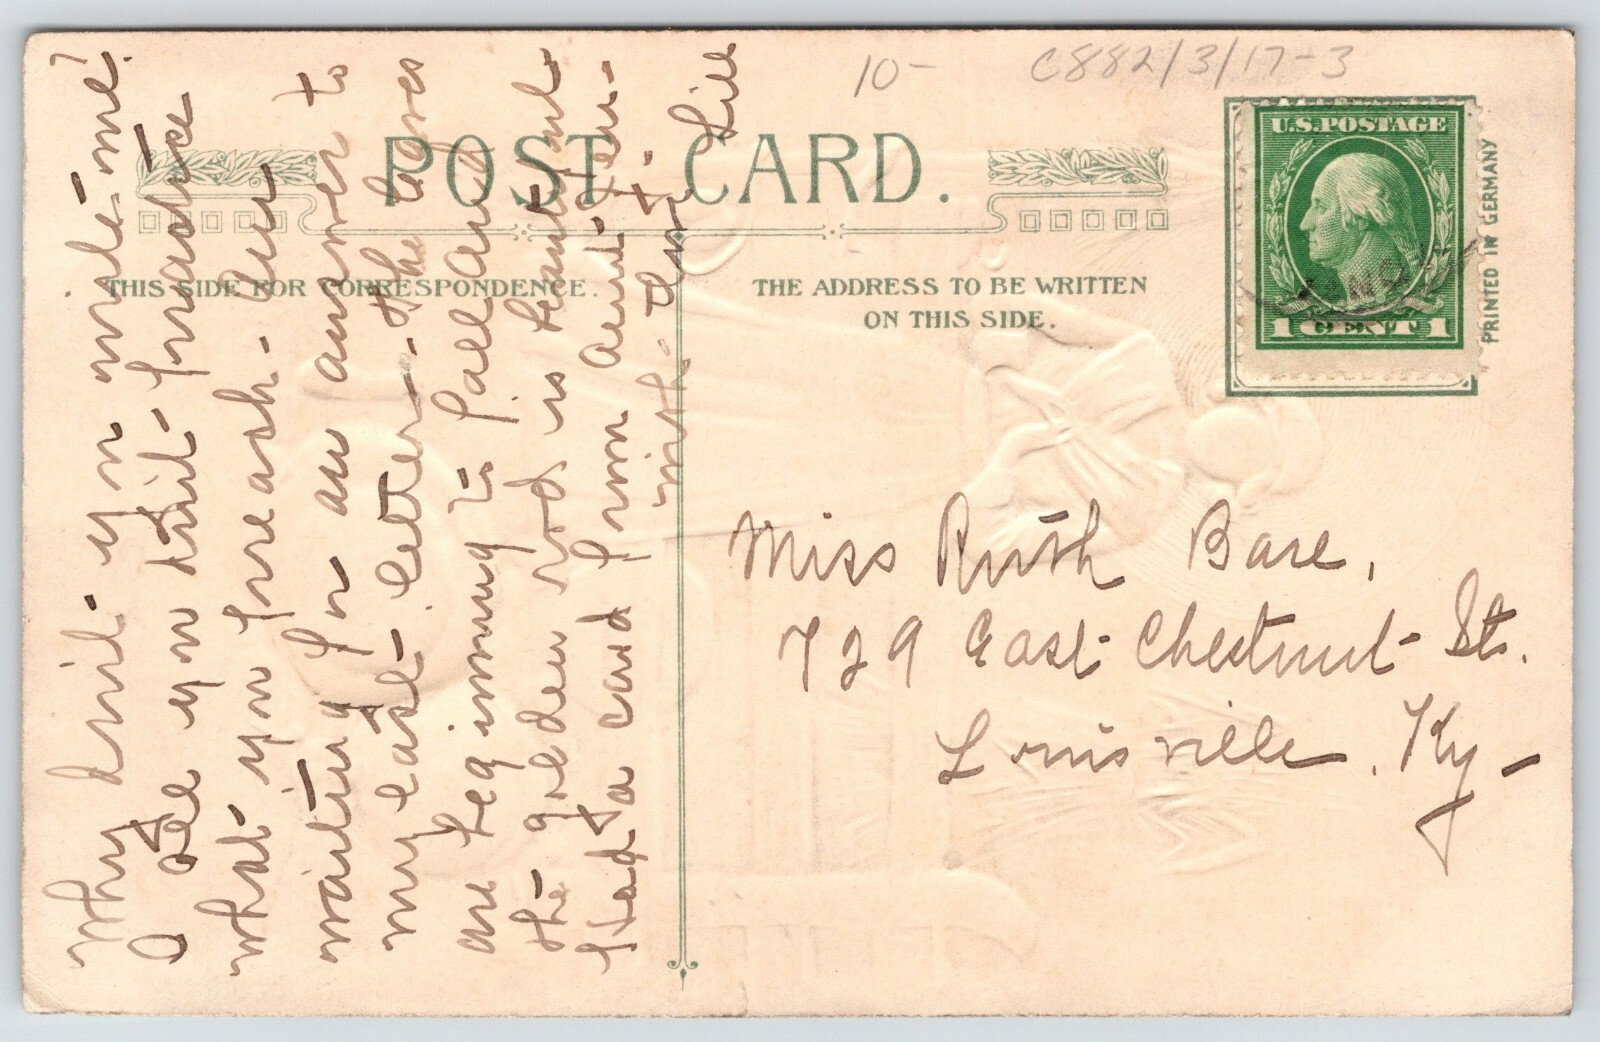 10- C882/3/17-3
POST CARD.
THIS SIDE FOR CORRESPONDENCE.
THE ADDRESS TO BE WRITTEN
ON THIS SIDE.
U.S. POSTAGE
1 CENT 1
PRINTED IN GERMANY
Why dont you write me?
I see you dont practice
what you preach. Am
waiting for an answer to
my last letter. The leaves
are beginning to fall and
the golden rod is beautiful
Had a card from Aunt
Lill
Miss Ruth Bare,
729 East Chestnut St.
Louisville, Ky-